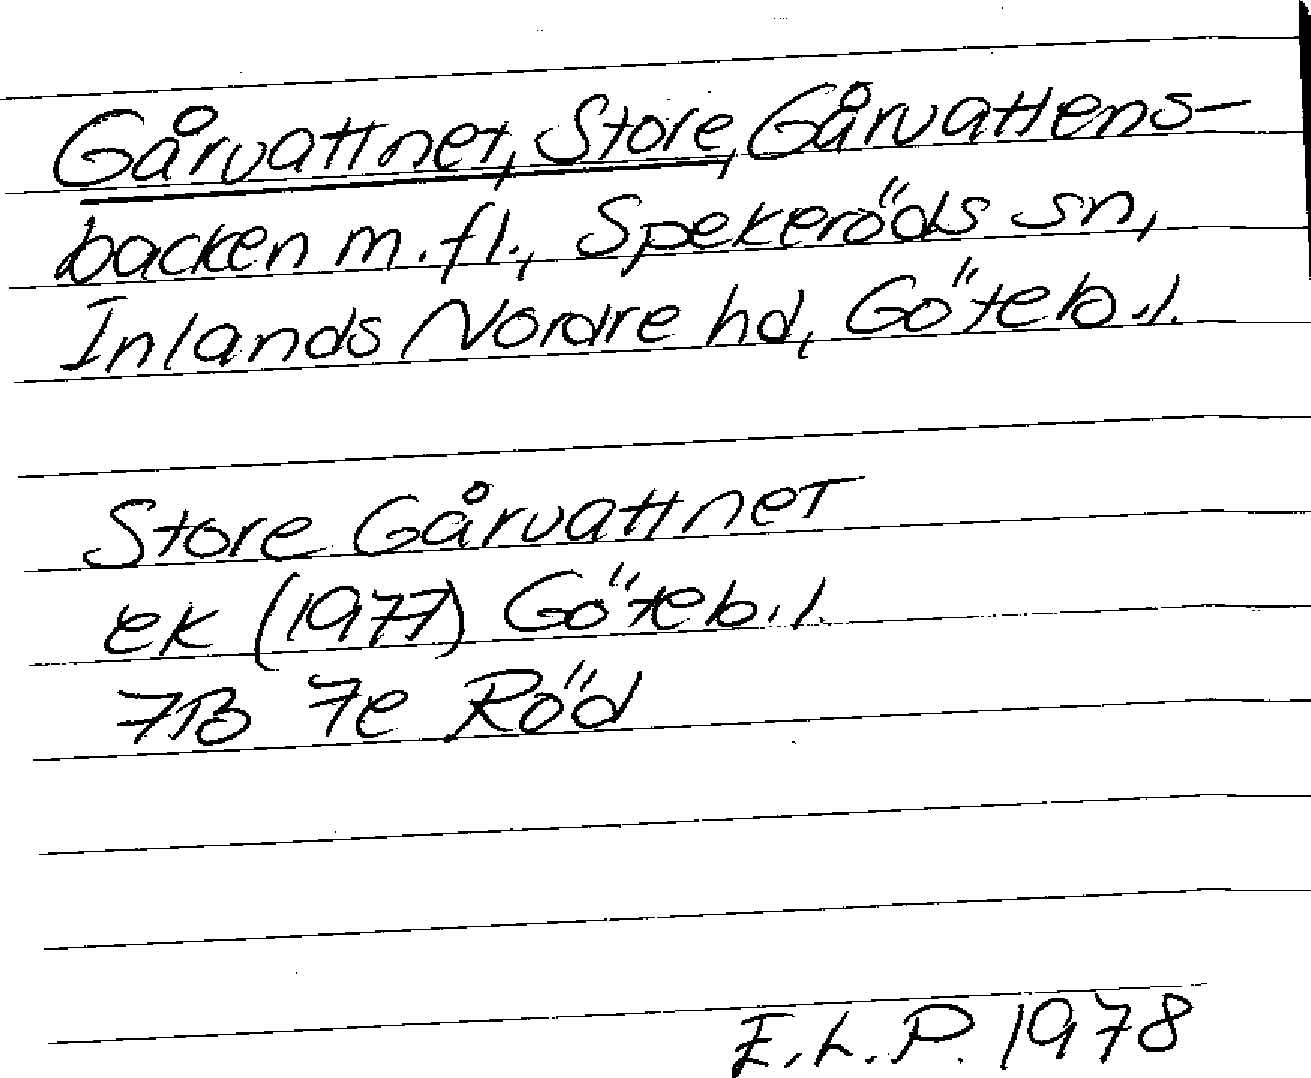 Gårvattnet, Store, Gårvattens-
backen m.fl., Spekeröds sn,
Inlands Nordre hd, Göteb.l.
Store Gårvattnet
ek (1977) Göteb.l.
7B 7e Röd
E.L.P. 1978